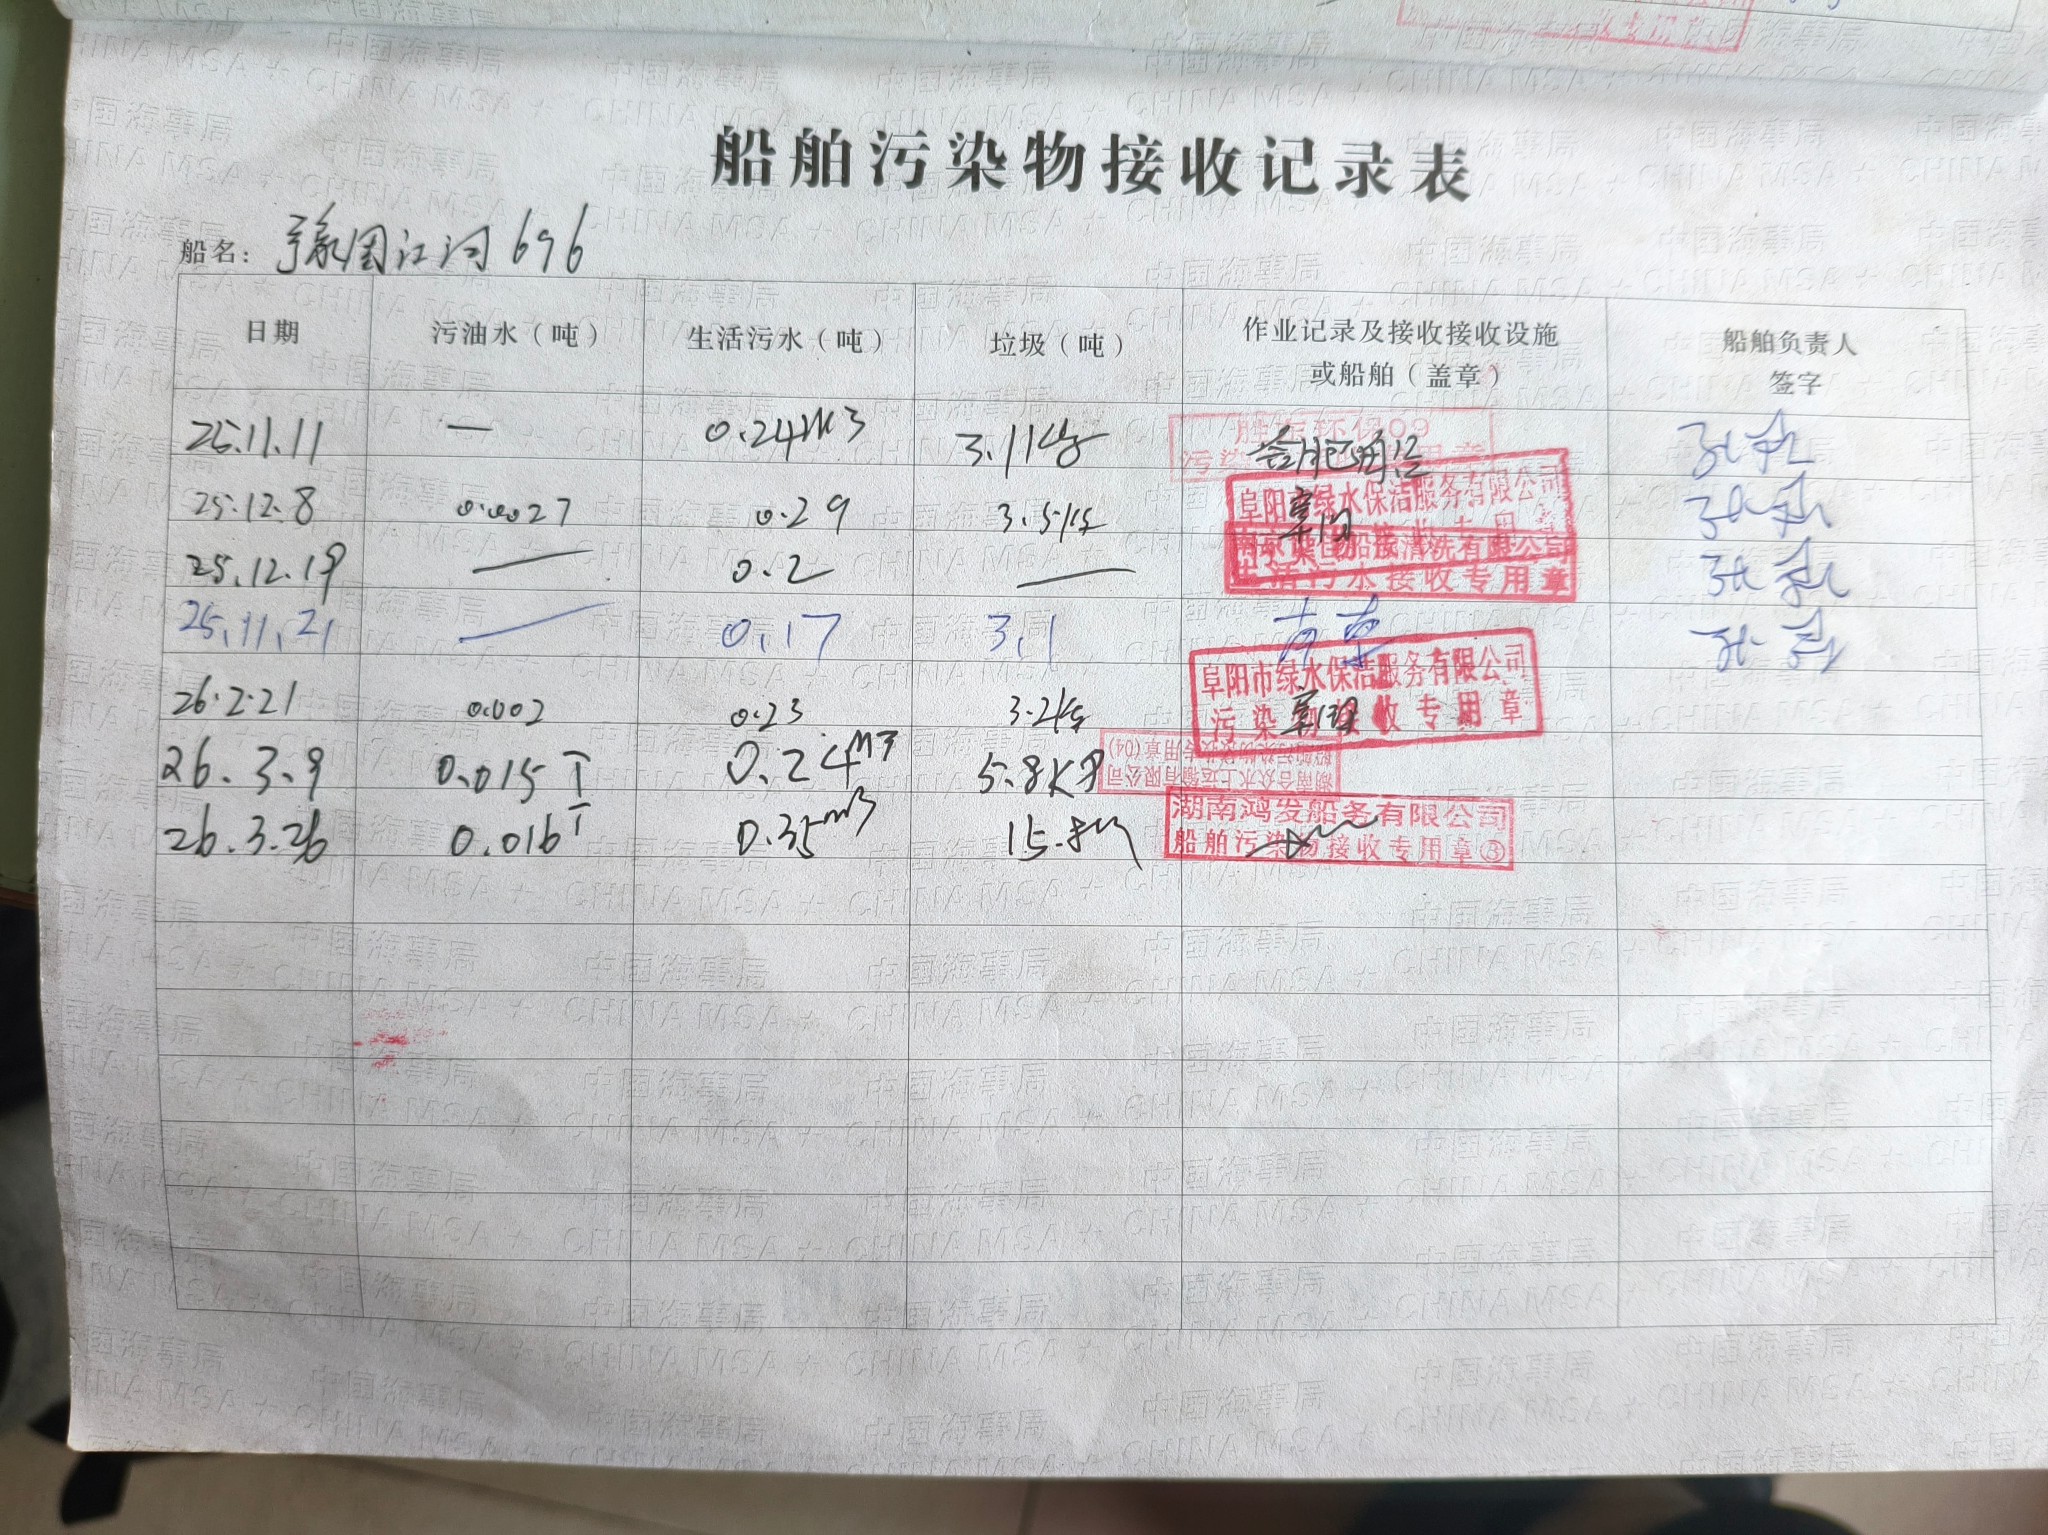 船舶污染物接收记录表
船名: 豫周江河696
日期 污油水（吨） 生活污水（吨） 垃圾（吨） 作业记录及接收接收设施或船舶（盖章） 船舶负责人签字
25.11.11 — 0.24M3 3.11Kg 合肥
25.12.8 0.0027 0.29 3.5Kg 阜阳
阜阳市绿水保洁服务有限公司
25.12.19 — 0.2 —
船舶清洗有限公司
生活污水接收专用章
25.11.21 — 0.17 3.1
26.2.21 0.002 0.23 3.2Kg 阜阳
阜阳市绿水保洁服务有限公司
污染物接收专用章
26.3.9 0.015T 0.24M3 5.8Kg
湖南合众水上运输有限公司
船舶污染物接收专用章(04)
26.3.26 0.016T 0.35m3 15.8
湖南鸿发船务有限公司
船舶污染物接收专用章③
中国海事局
CHINA MSA